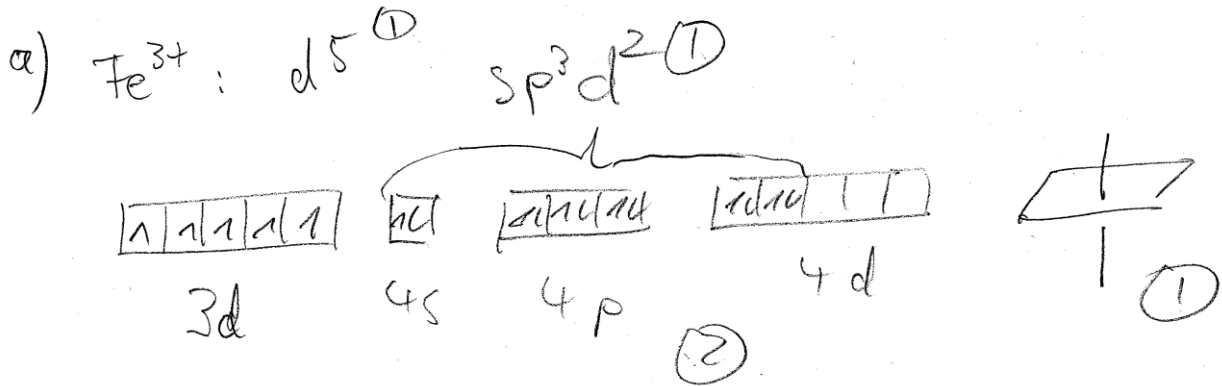 a) Fe³⁺ : d⁵ ① sp³d² ①
↑ ↑ ↑ ↑ ↑ ↑↓ ↑↓ ↑↓ ↑↓ ↑↓ ↑↓
3d 4s 4p 4d ①
②